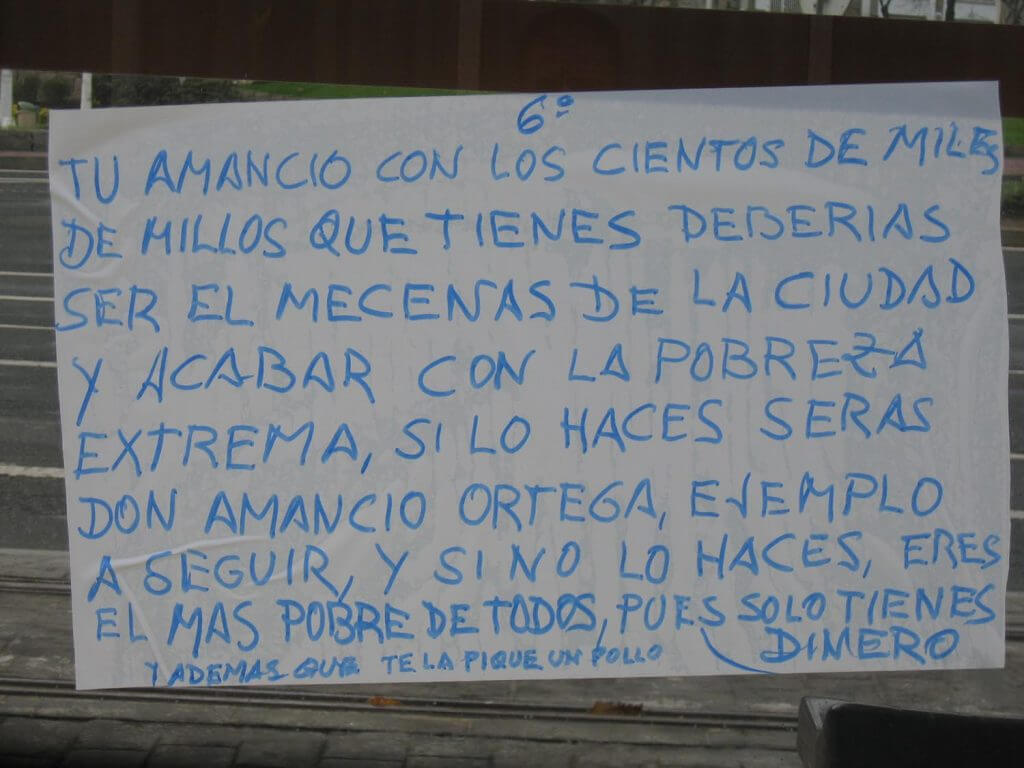 6º
TU AMANCIO CON LOS CIENTOS DE MILES
DE MILLOS QUE TIENES DEBERIAS
SER EL MECENAS DE LA CIUDAD
Y ACABAR CON LA POBREZA
EXTREMA, SI LO HACES SERAS
DON AMANCIO ORTEGA, EJEMPLO
A SEGUIR, Y SI NO LO HACES, ERES
EL MAS POBRE DE TODOS, PUES SOLO TIENES
DINERO
Y ADEMAS QUE TE LA PIQUE UN POLLO